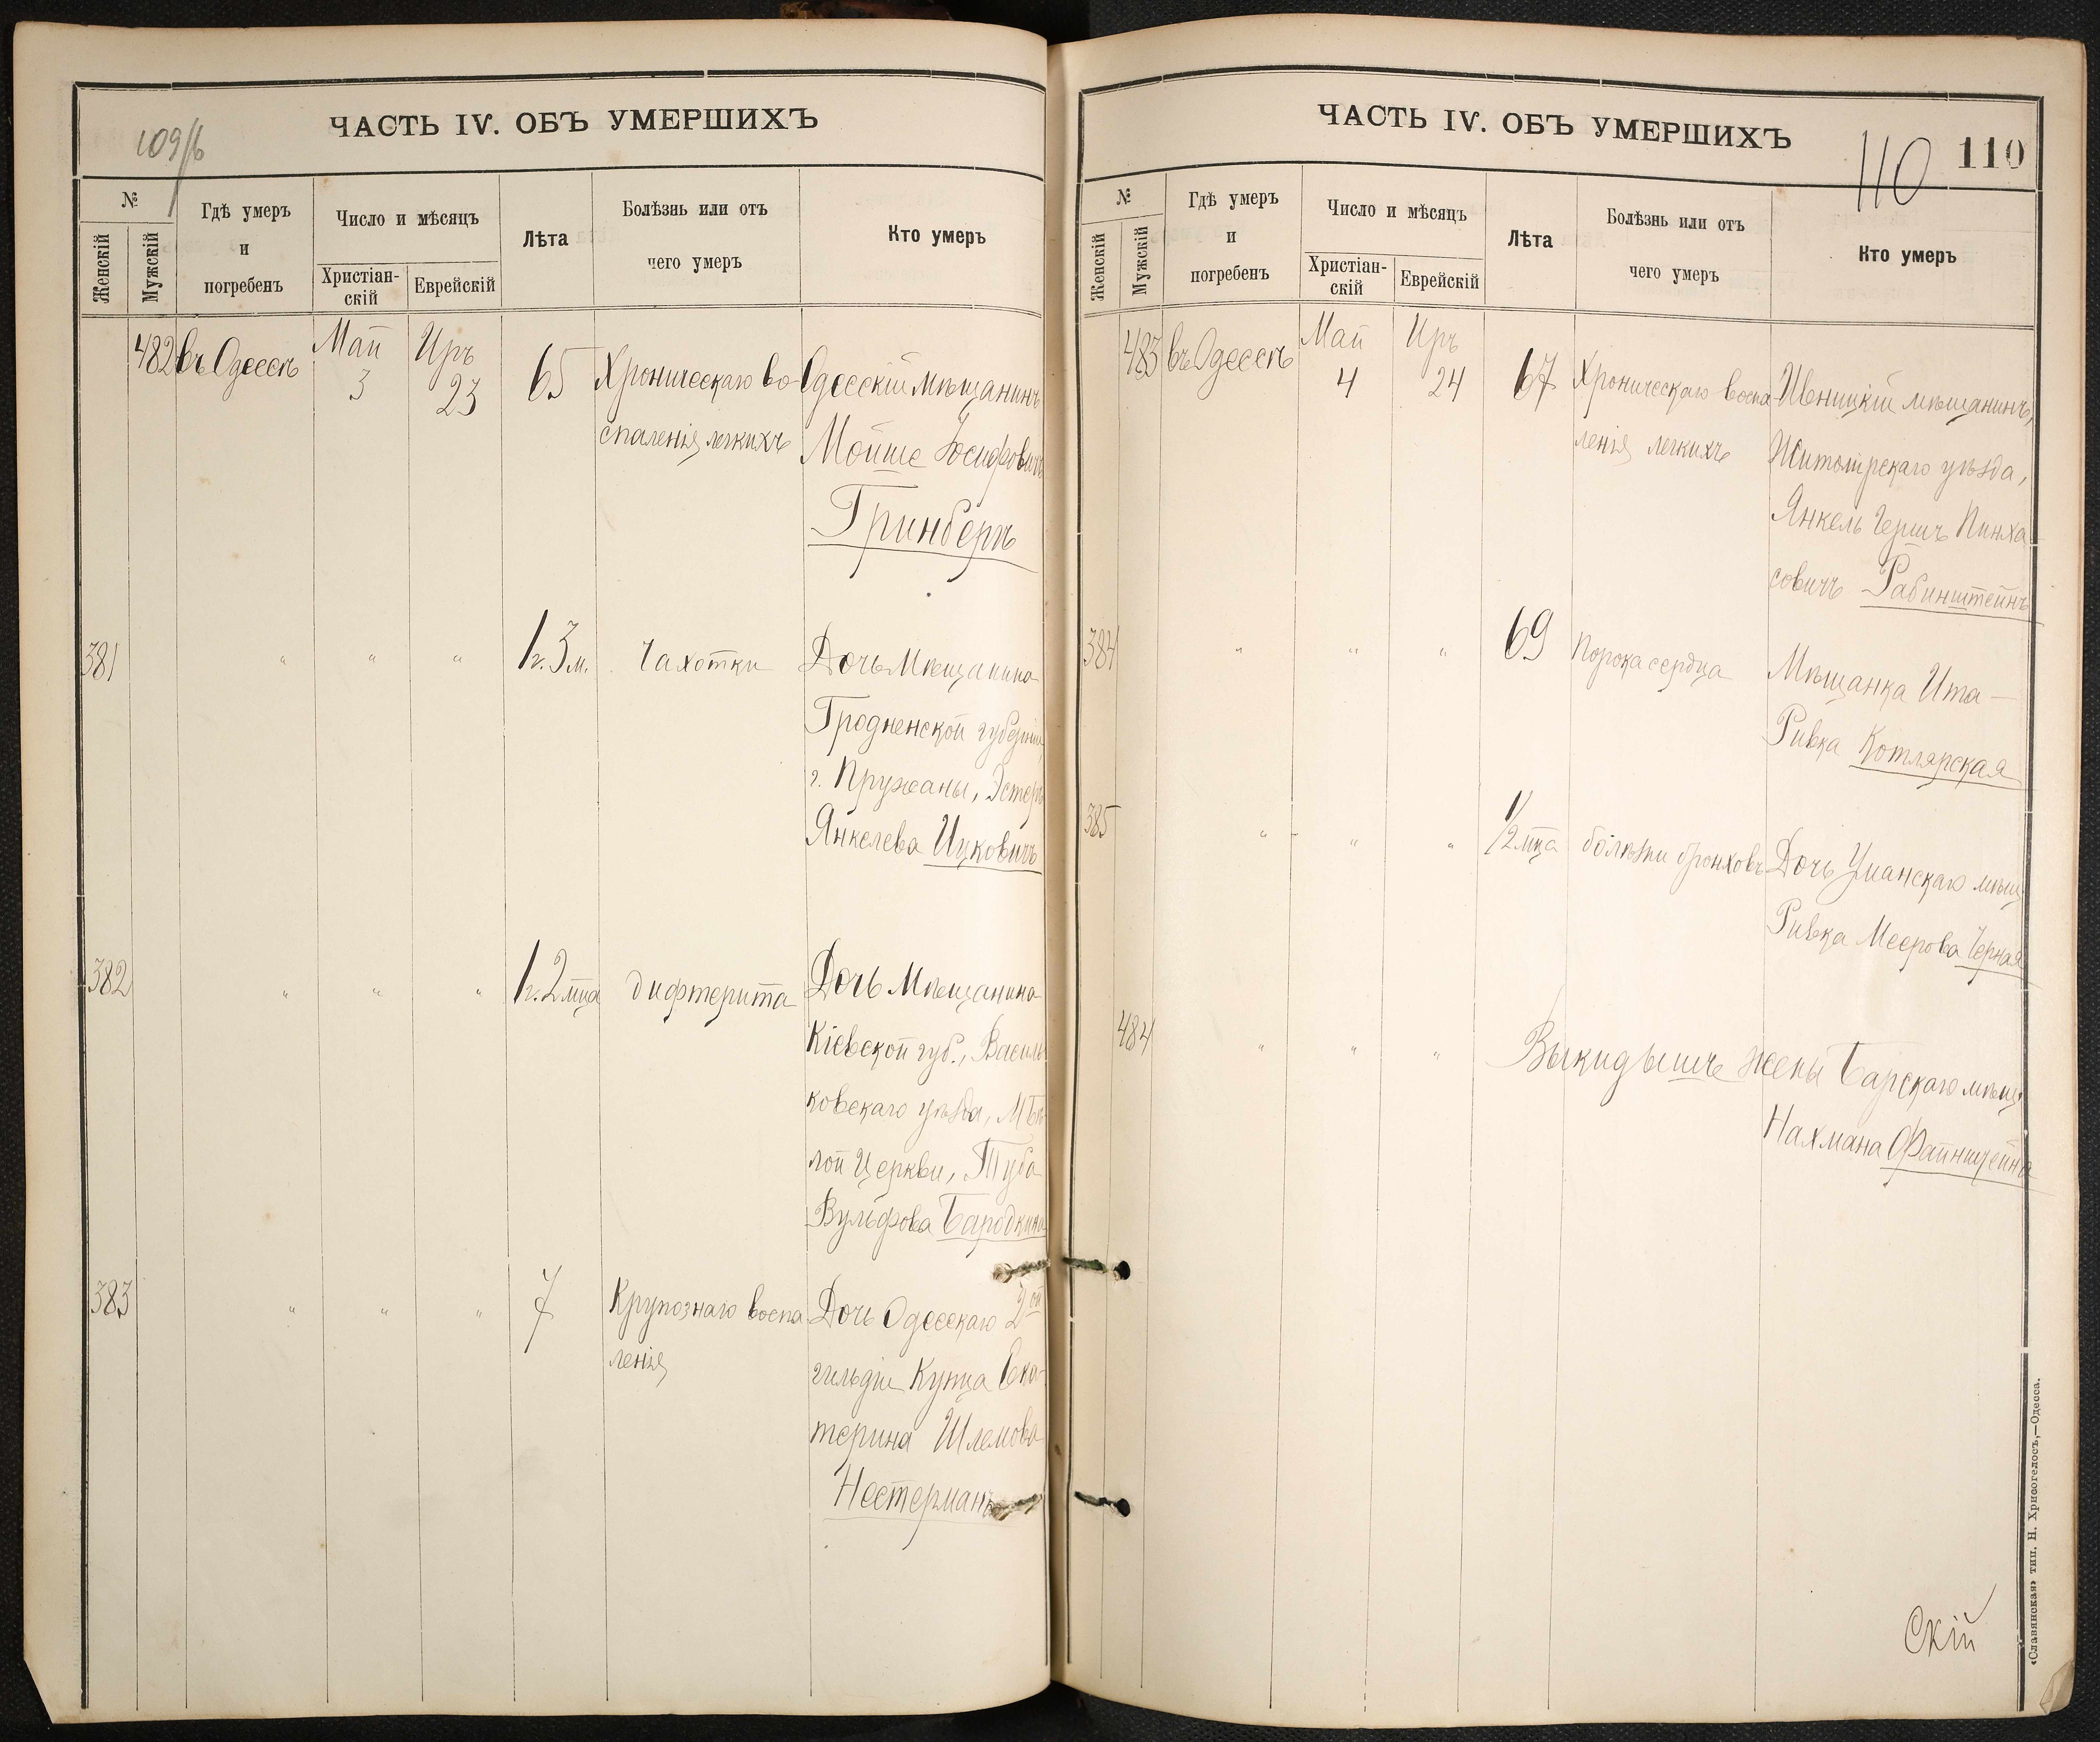 109/б
ЧАСТЬ IV. ОБЪ УМЕРШИХЪ
№
Женскій
Мужскій
Гдѣ умеръ
и
погребенъ
Число и мѣсяцъ
Христіан-
скій
Еврейскій
Лѣта
Болѣзнь или отъ
чего умеръ
Кто умеръ
482 въ Одессѣ Май Иръ
3 23 65 Хроническаго во- Одесскій мѣщанинъ
спаленія легкихъ Мойше Іосифовичъ
Гринбергъ
381 " " " 1 г. 3 м. Чахотки Дочь Мѣщанина
Гродненской губерніи,
г. Пружаны, Эстеръ
Янкелева Ицковичъ
382 " " " 1 г. 2 мца дифтерита Дочь Мѣщанина
Кіевской губ., Василь
ковскаго уѣзда, М. Бѣ
лой Церкви, Туба
Вульфова Бародкина
383 " " " 7 Крупознаго воспа Дочь Одесскаго 2ой
ленія гильдіи Купца Ека-
терина Шлемова
Нестерманъ
ЧАСТЬ IV. ОБЪ УМЕРШИХЪ
110
110
№
Женскій
Мужскій
Гдѣ умеръ
и
погребенъ
Число и мѣсяцъ
Христіан-
скій
Еврейскій
Лѣта
Болѣзнь или отъ
чего умеръ
Кто умеръ
483 въ Одессѣ Май Иръ
4 24 67 Хроническаго воспа- Ивницкій мѣщанинъ,
ленія легкихъ Житомірскаго уѣзда,
Янкель Гершъ Пинха-
совичъ Рабинштейнъ
384 " " " 69 Порока сердца Мѣщанка Ита-
Ривка Котлярская
385 " " " 1/2 мца болѣзни бронховъ Дочь Уманскаго мѣщ.
Ривка Меерова Черная
484 " " " Выкидышъ жены Барскаго мѣщ.
Нахмана Файнштейна
Скій
«Славянская» тип. Н. Хрисогелосъ,—Одесса.